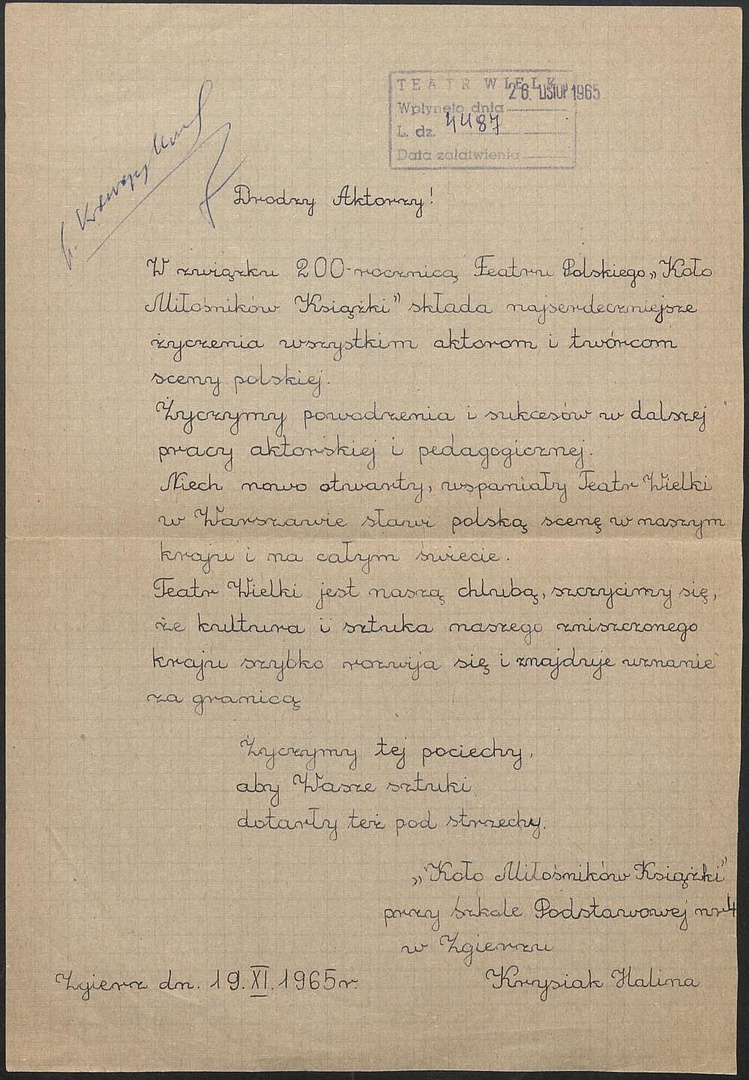 TEATR WIELKI
26. LISTOP. 1965
Wpłynęło dnia
L. dz. 4487
Data załatwienia
Drodzy Aktorzy!
W związku 200-rocznicą Teatru Polskiego „Koło
Miłośników Książki” składa najserdeczniejsze
życzenia wszystkim aktorom i twórcom
sceny polskiej.
Życzymy powodzenia i sukcesów w dalszej
pracy aktorskiej i pedagogicznej.
Niech nowo otwarty, wspaniały Teatr Wielki
w Warszawie sławi polską scenę w naszym
kraju i na całym świecie.
Teatr Wielki jest naszą chlubą, szczycimy się,
że kultura i sztuka naszego zniszczonego
kraju szybko rozwija się i znajduje uznanie
za granicą
Życzymy tej pociechy,
aby Wasze sztuki
dotarły też pod strzechy.
„Koło Miłośników Książki”
przy Szkole Podstawowej nr 4
w Zgierzu
Zgierz dn. 19. XI. 1965 r. Krysiak Halina